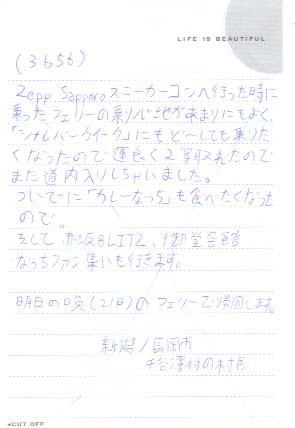 LIFE IS BEAUTIFUL
(3656)
Zepp Sapporoスニーカーコンへ行った時に
乗ったフェリーの乗り心地があまりにもよく、
にもど〜しても乗りた
くなったので運良く2 取れたので
また道内入りしちゃいました。
ついでに「カレーなっち」も食べたくなった
ので。
そして赤坂BLITZ、御堂会館
なっちファン集いも行きます。
明日の晩(21日)のフェリーで帰国します。
新潟/長岡市
千谷澤村の村長
◀CUT OFF